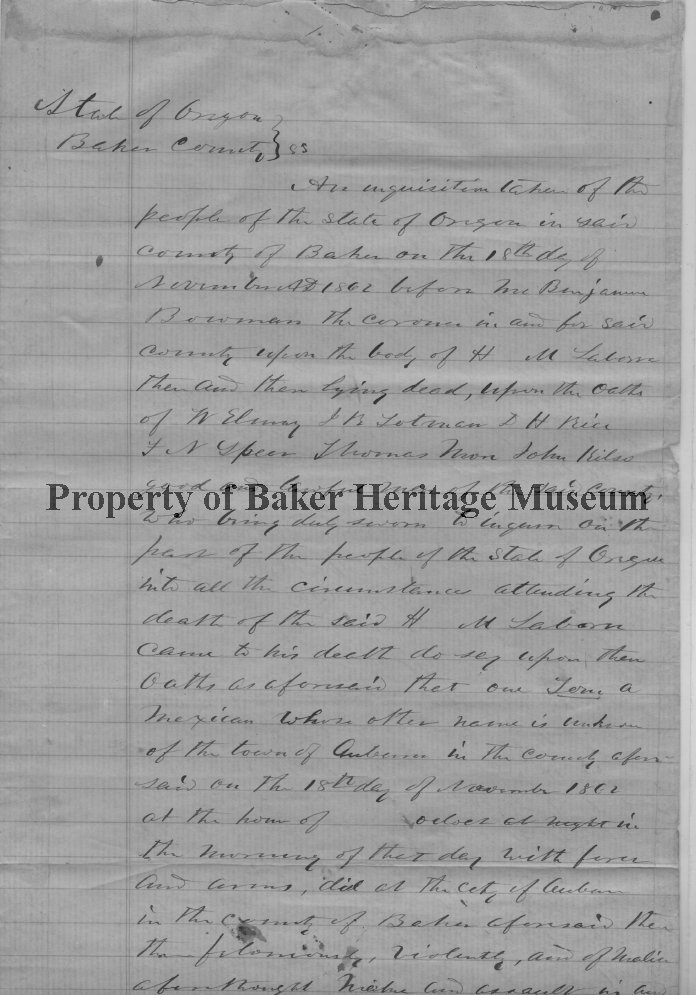 State of Oregon
Baker County } ss
An inquisition taken of the
people of the state of Oregon in said
county of Baker on the 18th day of
November AD 1862 before me Benjamin
Bowman the coroner in and for said
county upon the body of H M Laborn
then and then lying dead, upon the oaths
of W Elmay J B Totman D H Rice
F N Speer Thomas Mon John Kelso
good and lawful men of the said county,
Property of Baker Heritage Museum
who being duly sworn to inquire on the
part of the people of the state of Oregon
into all the circumstances attending the
death of the said H M Laborn
came to his death do say upon their
Oaths as aforesaid that one Tom a
Mexican whose other name is unknown
of the town of Auburn in the county afore
said on the 18th day of November 1862
at the hour of oclock at night in
the morning of that day with force
and arms, did at the city of Auburn
in the county of Baker aforesaid then
then feloniously, violently, and of malice
aforethought make and assault in and